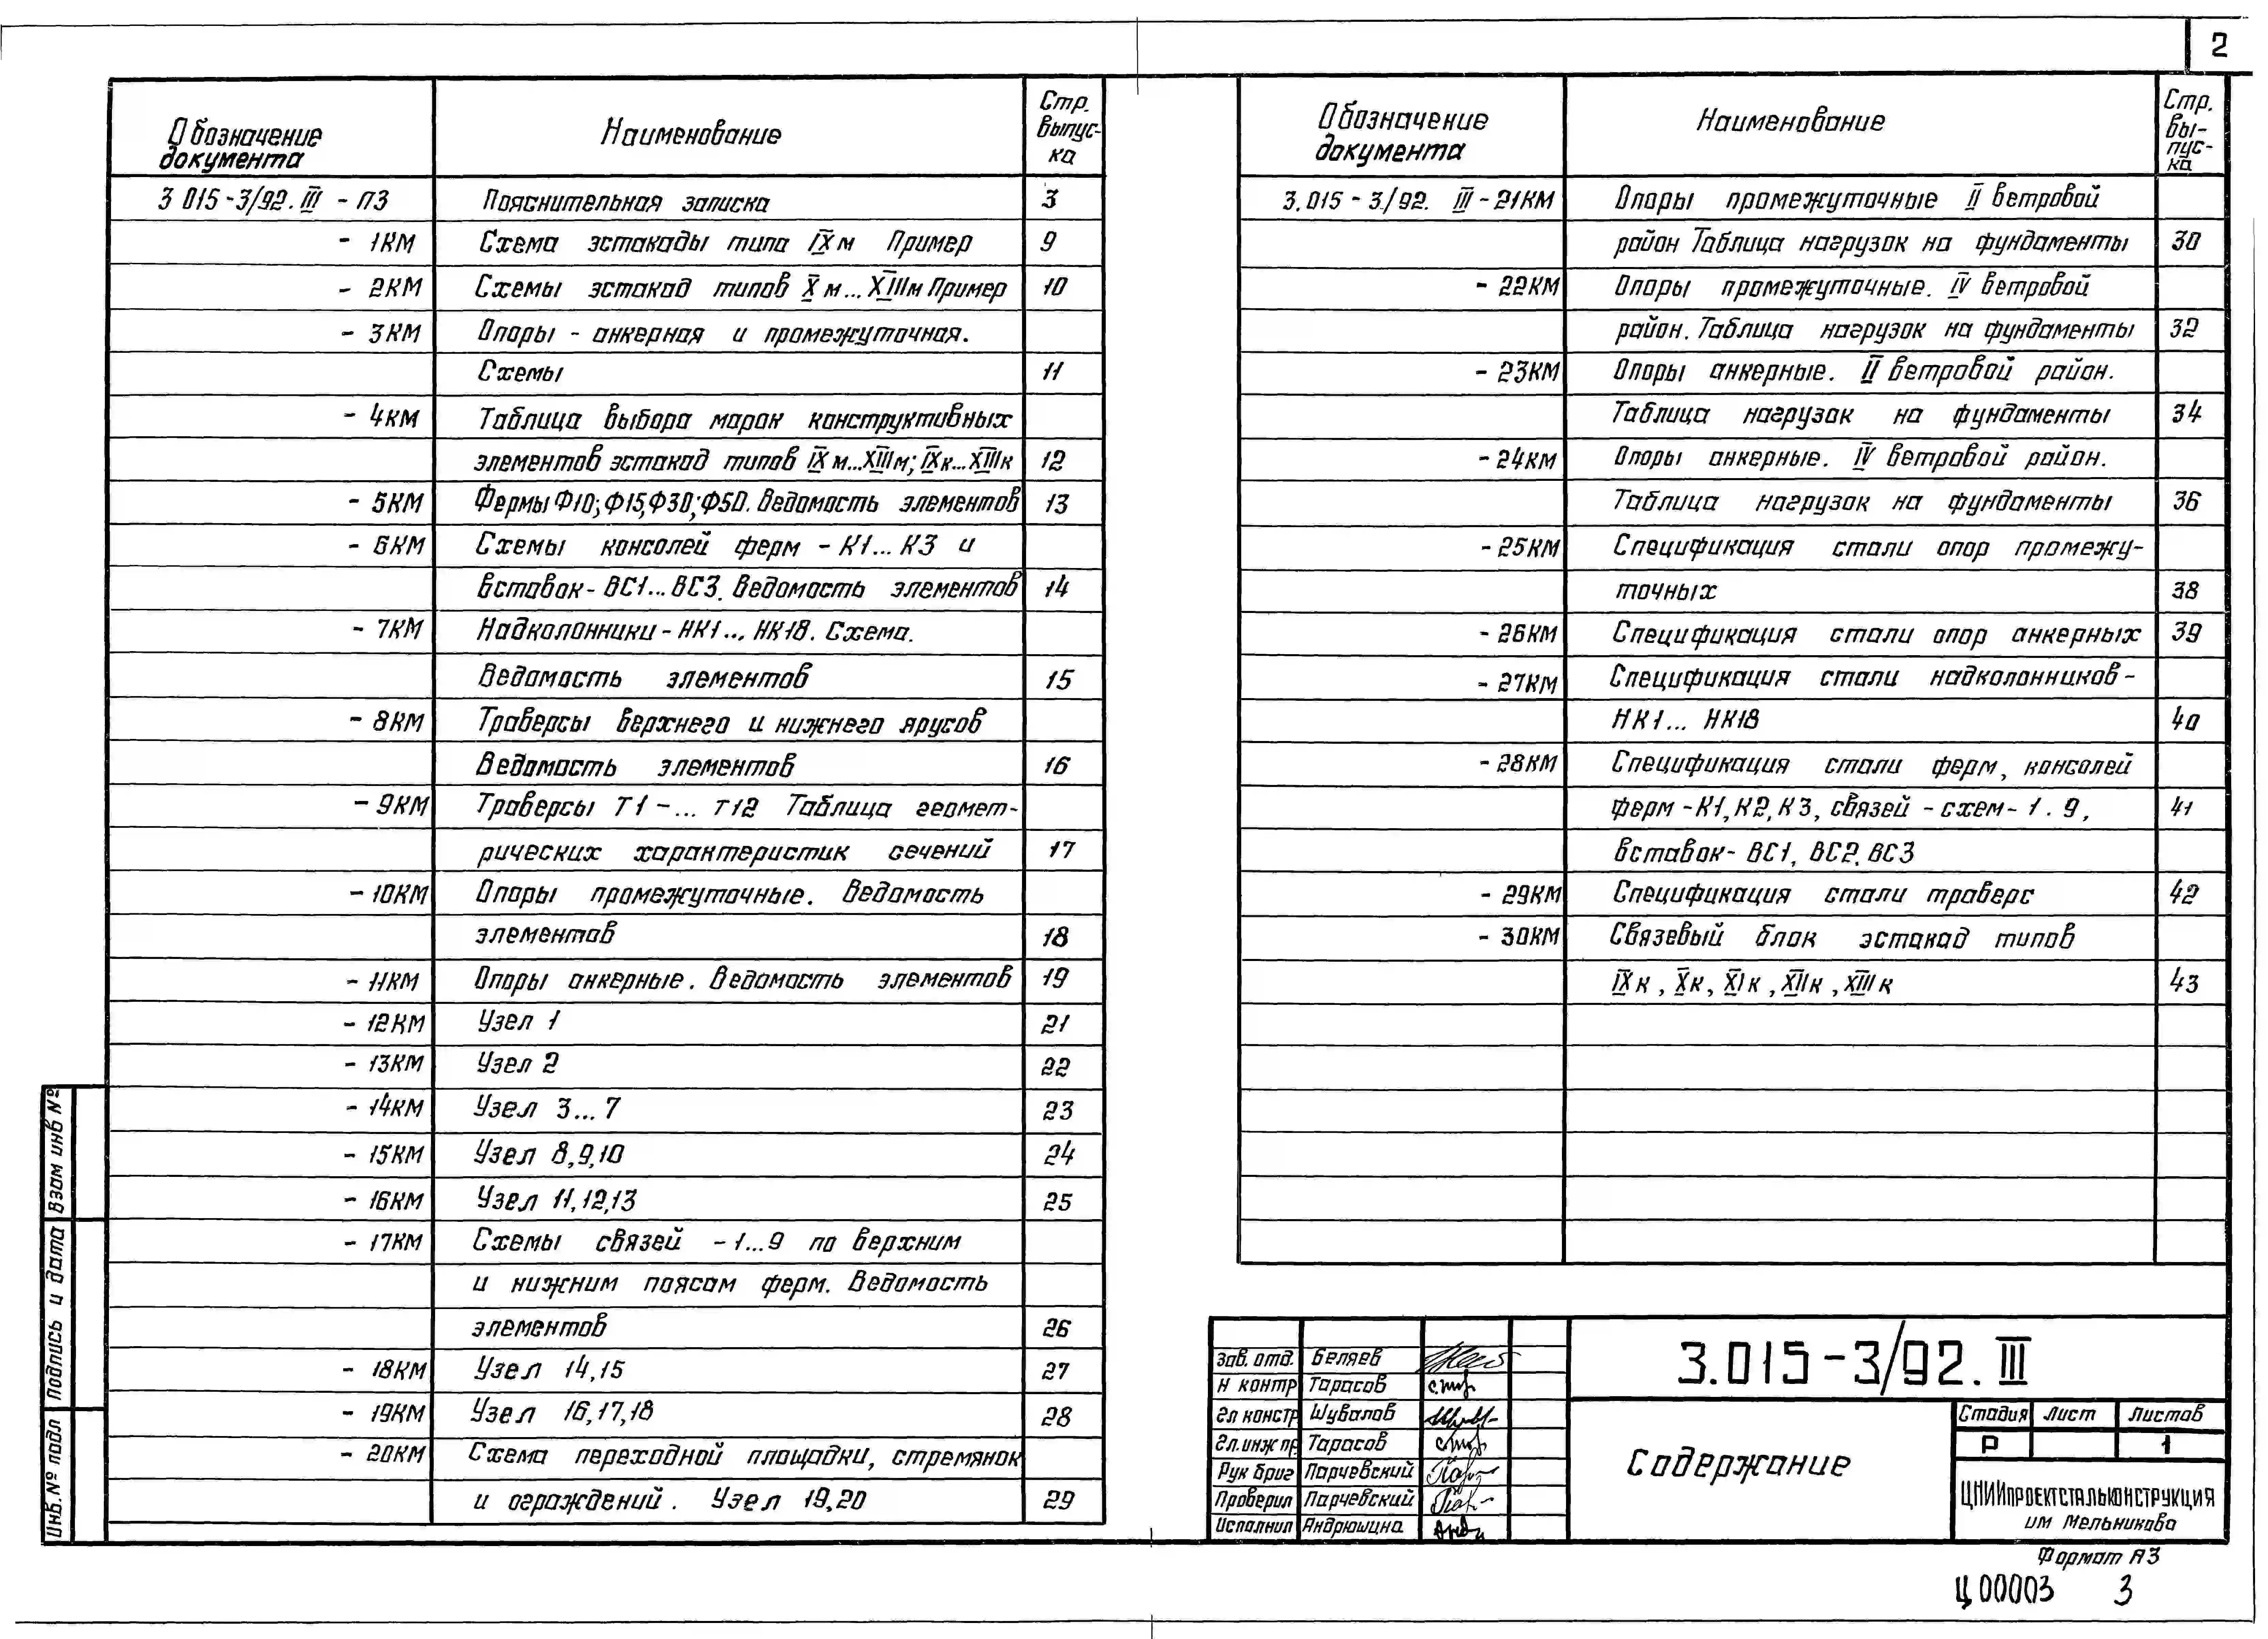 2
Обозначение документа Наименование Стр. выпус-ка
3 015-3/92. III - ПЗ Пояснительная записка 3
- 1КМ Схема эстакады типа IXм Пример 9
- 2КМ Схемы эстакад типов Xм... XIIIм Пример 10
- 3КМ Опоры - анкерная и промежуточная.
Схемы 11
- 4КМ Таблица выбора марок конструктивных
элементов эстакад типов IXм...XIIIм; IXк...XIIIк 12
- 5КМ Фермы Ф10; Ф15, Ф30; Ф50. Ведомость элементов 13
- 6КМ Схемы консолей ферм - К1... К3 и
вставок - ВС1... ВС3. Ведомость элементов 14
- 7КМ Надколонники - НК1... НК18. Схема.
Ведомость элементов 15
- 8КМ Траверсы верхнего и нижнего ярусов
Ведомость элементов 16
- 9КМ Траверсы Т1 -... Т12 Таблица геомет-
рических характеристик сечений 17
- 10КМ Опоры промежуточные. Ведомость
элементов 18
- 11КМ Опоры анкерные. Ведомость элементов 19
- 12КМ Узел 1 21
- 13КМ Узел 2 22
- 14КМ Узел 3... 7 23
- 15КМ Узел 8,9,10 24
- 16КМ Узел 11,12,13 25
- 17КМ Схемы связей - 1...9 по верхним
и нижним поясам ферм. Ведомость
элементов 26
- 18КМ Узел 14,15 27
- 19КМ Узел 16,17,18 28
- 20КМ Схема переходной площадки, стремянок
и ограждений. Узел 19,20 29
Обозначение документа Наименование Стр. вы-пус-ка
3.015 - 3/92. III - 21КМ Опоры промежуточные II ветровой
район Таблица нагрузок на фундаменты 30
- 22КМ Опоры промежуточные. IV ветровой
район. Таблица нагрузок на фундаменты 32
- 23КМ Опоры анкерные. II ветровой район.
Таблица нагрузок на фундаменты 34
- 24КМ Опоры анкерные. IV ветровой район.
Таблица нагрузок на фундаменты 36
- 25КМ Спецификация стали опор промежу-
точных 38
- 26КМ Спецификация стали опор анкерных 39
- 27КМ Спецификация стали надколонников -
НК1... НК18 40
- 28КМ Спецификация стали ферм, консолей
ферм - К1, К2, К3, связей - схем - 1 . 9, 41
вставок - ВС1, ВС2, ВС3
- 29КМ Спецификация стали траверс 42
- 30КМ Связевый блок эстакад типов
IXк, Xк, XIк, XIIк, XIIIк 43
Взам инв №
Подпись и дата
Инв. № подл
Зав. отд. Беляев
Н контр Тарасов
Гл констр Шувалов
Гл. инж пр Тарасов
Рук бриг Парчевский
Проверил Парчевский
Исполнил Андрюшина
3.015-3/92. III
Содержание
Стадия Лист Листов
Р 1
ЦНИИпроектстальконструкция
им Мельникова
Формат А3
Ц00003 3